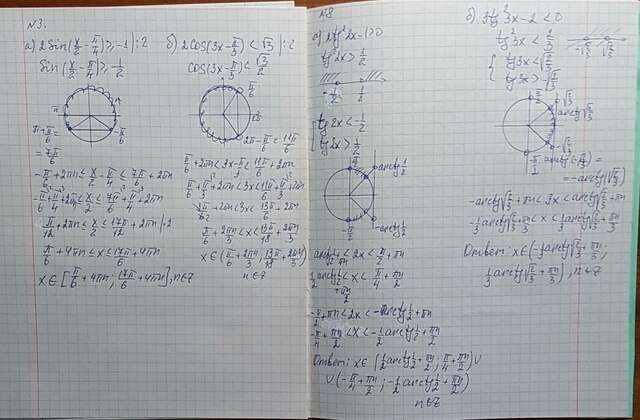 N3.
а) 2 sin(x/2 - π/4) ≥ -1 | :2
sin(x/2 - π/4) ≥ -1/2
π
π + π/6 =
= 7π/6
-π/6
-π/6 + 2πn ≤ x/2 - π/4 ≤ 7π/6 + 2πn
π/12 + 2πn ≤ x/2 ≤ 17π/12 + 2πn | ·2
π/6 + 4πn ≤ x ≤ 17π/6 + 4πn
x ∈ [π/6 + 4πn; 17π/6 + 4πn], n ∈ Z
б) 2cos(3x - π/3) < √3 | :2
cos(3x - π/3) < √3/2
π/6
2π
2π - π/6 = 11π/6
π/6 + 2πn < 3x - π/3 < 11π/6 + 2πn
π/6 + 2πn/3 < x < 13π/18 + 2πn/3
x ∈ (π/6 + 2πn/3; 13π/18 + 2πn/3)
n ∈ Z
N8
tg²2x > 1/2
tg2x < -1/2
tg2x > 1/2
π/2
arctg 1/2
-π/2
-arctg 1/2
arctg 1/2 + πn < 2x < π/2 + πn
1/2 arctg 1/2 + πn/2 < x < π/4 + πn/2
-π/2 + πn < 2x < -arctg 1/2 + πn
-π/4 + πn/2 < x < -1/2 arctg 1/2 + πn/2
Ответ: x ∈ (1/2 arctg 1/2 + πn/2; π/4 + πn/2) ∪
∪ (-π/4 + πn/2; -1/2 arctg 1/2 + πn/2)
n ∈ Z
б) 3tg²3x - 2 < 0
tg²3x < 2/3
-√2/3 √2/3
tg3x < √2/3
tg3x > -√2/3
π/2
√2/3
arctg√2/3
-√2/3
-π/2
arctg(-√2/3) =
= -arctg(√2/3)
-arctg√2/3 + πn < 3x < arctg√2/3 + πn
-1/3 arctg√2/3 + πn/3 < x < 1/3 arctg√2/3 + πn/3
Ответ: x ∈ (-1/3 arctg√2/3 + πn/3;
1/3 arctg√2/3 + πn/3), n ∈ Z